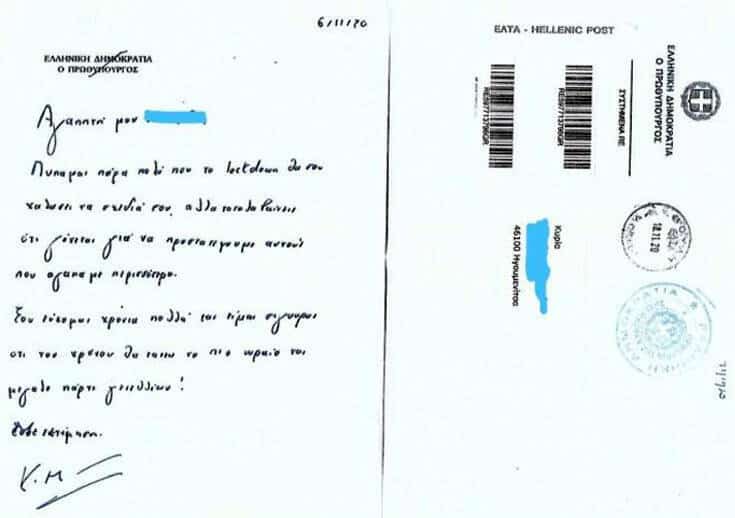 6/11/20
ΕΛΛΗΝΙΚΗ ΔΗΜΟΚΡΑΤΙΑ
Ο ΠΡΩΘΥΠΟΥΡΓΟΣ
Αγαπητή μου
Λυπαμαι πάρα πολύ που το lockdown θα σου
χαλάσει τα σχέδιά σου, αλλα καταλαβαίνεις
ότι γίνεται για να προστατεψουμε αυτούς
που αγαπαμε περισσότερο.
Σου εύχομαι χρόνια πολλά και είμαι σίγουρος
οτι του χρόνου θα κανω το πιο ωραίο και
μεγαλο πάρτι γενεθλίων!
Με εκτίμηση,
Κ.Μ
ΕΛΤΑ - HELLENIC POST
ΕΛΛΗΝΙΚΗ ΔΗΜΟΚΡΑΤΙΑ
Ο ΠΡΩΘΥΠΟΥΡΓΟΣ
ΣΥΣΤΗΜΕΝΑ RE
RE597713796GR
RE597713796GR
Κυρία
46100 Ηγουμενίτσα
18.11.20